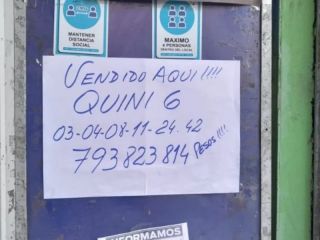 MANTENER
DISTANCIA
SOCIAL
MAXIMO
4 PERSONAS
DENTRO DEL LOCAL
VENDIDO AQUI !!!!
QUINI 6
03-04-08-11-24.42
793823814 PESOS !!!!
INFORMAMOS